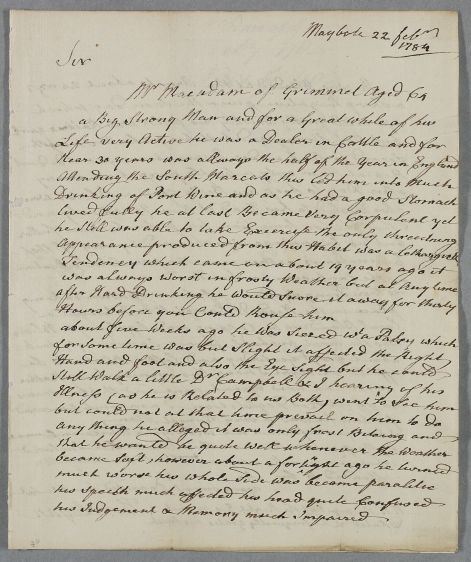 Maybole 22 febry
1784
Sir
Mr Macadam of Grimmet Aged 64
a Big Strong Man and for a Great while of his
Life very Active he was a Dealer in Cattle and for
Near 30 years was allways the half of the year in England
Attending the South Marcats this led him into Much
Drinking of Port Wine and as he had a good Stomach
lived fully he at last Became very Corpulent yet
he Still was able to take Excercise the only threatning
Appearance produced from this Habit was a Lethargick
Tendency which came on about 14 years ago it
was always worst in frosty Weather but at Any time
after Hard Drinking he would Snore it away for thirty
Hours before you Could Rouse him
about five Weeks ago he was Siezed wt a Palsy which
for Some time was but Slight it affected the Right
Hand and foot and also the Eye Sight but he could
Still Walk a little Dr Campbell & I hearing of his
Illness (as he is Related to us both) went to See him
but could not at that time prevail on him to do
any thing he alleged it was only frost Bitening and
that he wanted be quite well whenever the Weather
became Soft, however about a fortnight ago he turned
much worse his whole Side was become paralitic
his Speech much affected his head quite Confused
his Judgement & Memory much Impaired